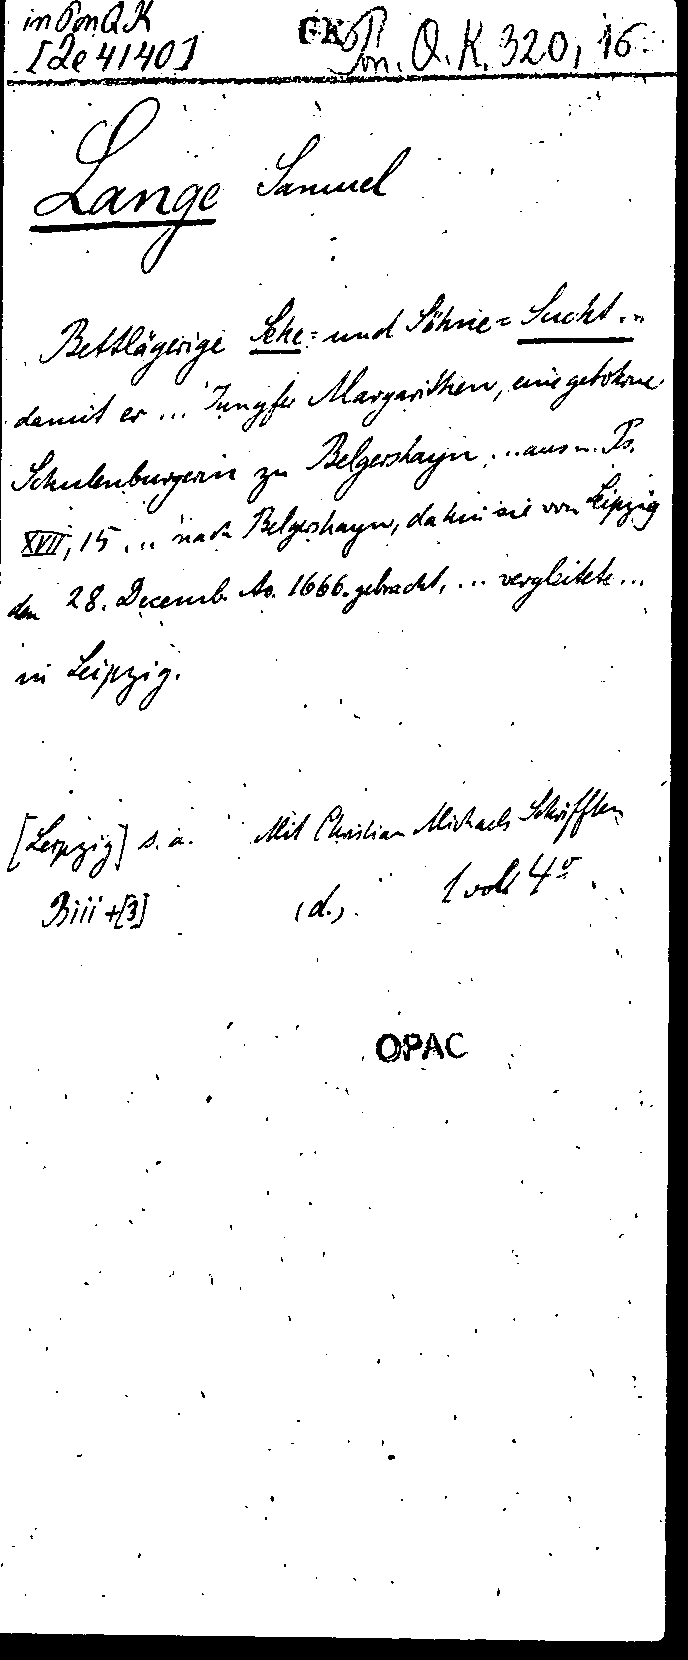 in Pon Q K
[Ze 4140]
GK Pon. Q. K. 320, 16.
Lange Samuel
Bettlägerige Sehe= und Söhne= Sucht ..
damit er ... Jungfer Margarithen, eine gebohrne
Schulenburgerin zu Belgershayn ... aus n. Ps.
XVII, 15 ... nach Belgershayn, dahin sie von Leipzig
den 28. Decemb. Ao. 1666. gebracht, ... vergleitete ...
in Leipzig.
[Leipzig] s. a. Mit Christian Michaels Schrifften
Biii+[3] (d.) 1 vol 4°
OPAC